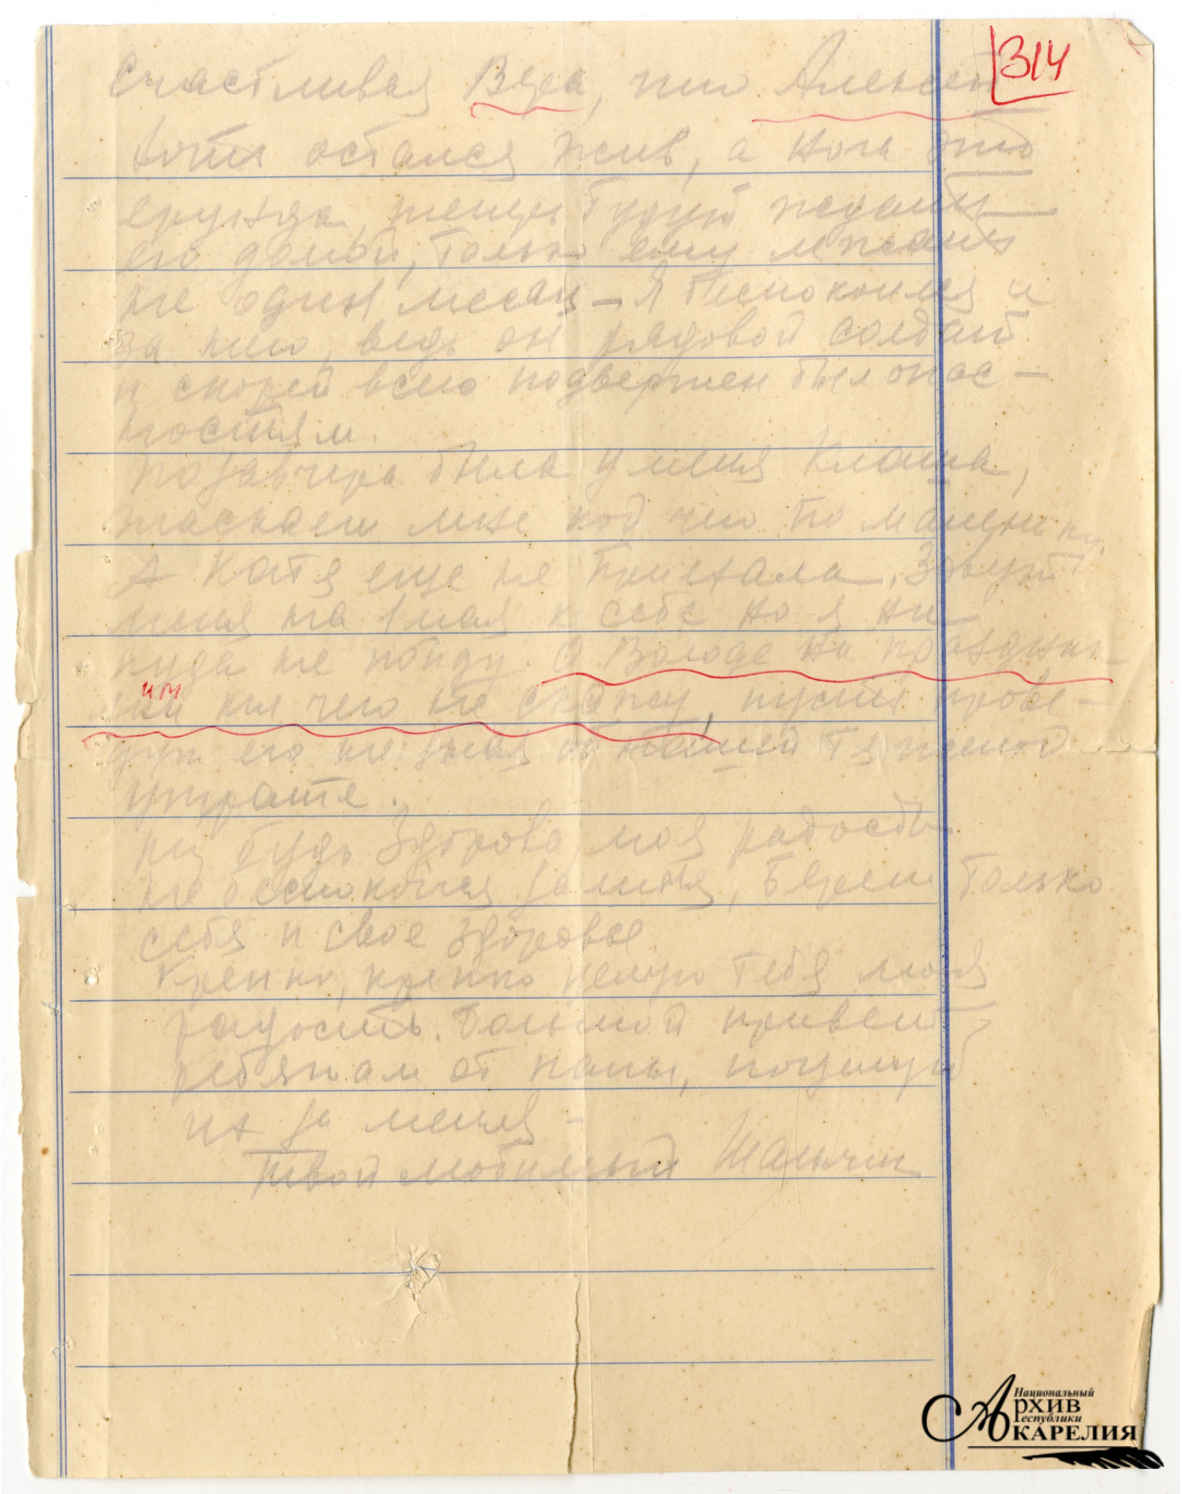 314
Счастливая Вера, что Алексей
хотя остался жив, а нога это
ерунда, теперь будут ждать
его домой, только ему лежать
не один месяц – Я беспокоился и
за него, ведь он рядовой солдат
и скорей всего подвержен был опас–
ностям.
Позавчера была у меня Клаша,
таскает мне кой чего по маленьку.
А Катя еще не приехала. Зовут
меня на 1 мая к себе но я ни
куда не пойду. О Володе на праздни–
ки ни чего не скажу, пусть прове–
дут его не зная о нашей тяжелой
утрате.
Ну будь здорова моя радость
не беспокойся за меня, береги только
себя и свое здоровье
Крепко, крепко целую тебя моя
радость. Большой привет
ребятам от папы, поцелуй
их за меня –
Твой любимый
Национальный
Архив
Республики
Карелия